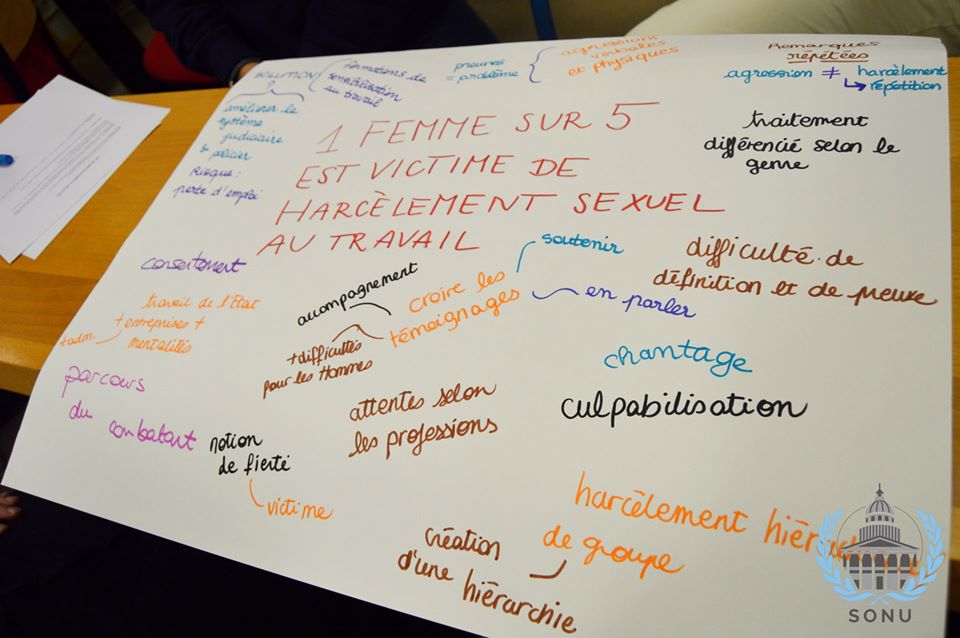 SOLUTION
formations de
sensibilisation
au travail
preuves
= problème
agressions
verbales
et physiques
Remarques
répétées
agression ≠ harcèlement
répétition
améliorer le
système
judiciaire
& policier
Risque :
perte d'emploi
1 FEMME SUR 5
EST VICTIME DE
HARCÈLEMENT SEXUEL
AU TRAVAIL
traitement
différencié selon le
genre
consentement
travail de l'Etat
+ entreprises +
mentalités
+ adm.
accompagnement
croire les
témoignages
soutenir
en parler
+ difficultés
pour les Hommes
difficulté de
définition et de preuve
chantage
culpabilisation
parcours
du combatant
notion
de fierté
victime
attentes selon
les professions
harcèlement
de groupe
création
d'une hiérarchie
SONU